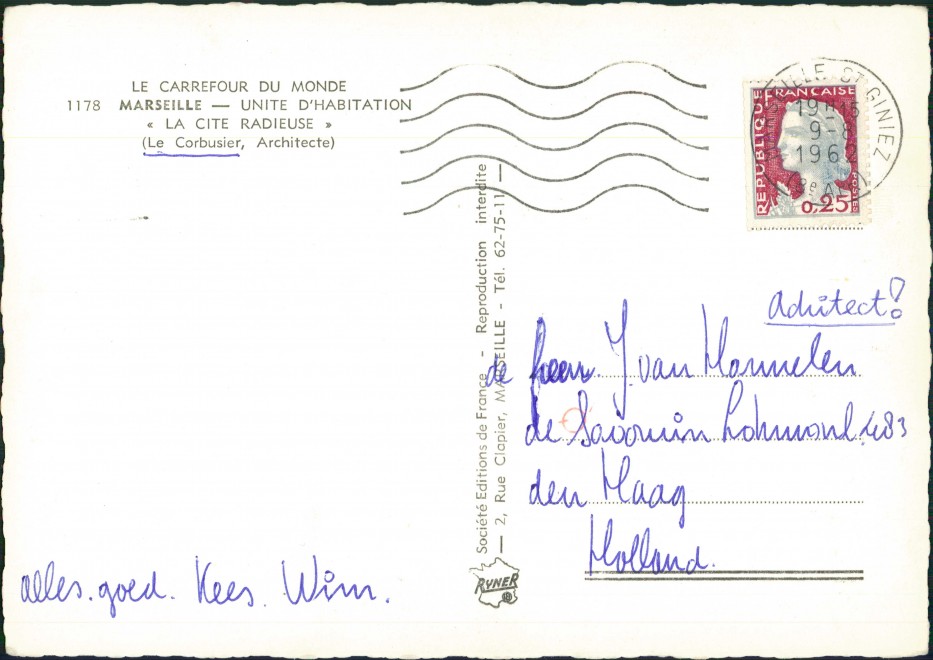 LE CARREFOUR DU MONDE
1178 MARSEILLE — UNITE D'HABITATION
« LA CITE RADIEUSE »
(Le Corbusier, Architecte)
RÉPUBLIQUE FRANÇAISE
POSTES
0,25
ST GINIEZ
19H15
9-8
196
Société Editions de France - Reproduction interdite
— 2, Rue Clapier, MARSEILLE - Tél. 62-75-11 —
RYNER
Architect!
de heer J. van
de Lohmanl. 483
den Haag
Holland.
alles. goed. Kees. Wim.